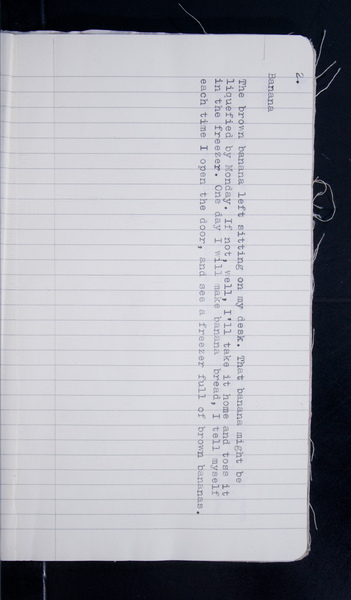 2.
Banana
The brown banana left sitting on my desk. That banana might be
liquefied by Monday. If not, well, I'll take it home and toss it
in the freezer. One day I will make banana bread, I tell myself
each time I open the door, and see a freezer full of brown bananas.